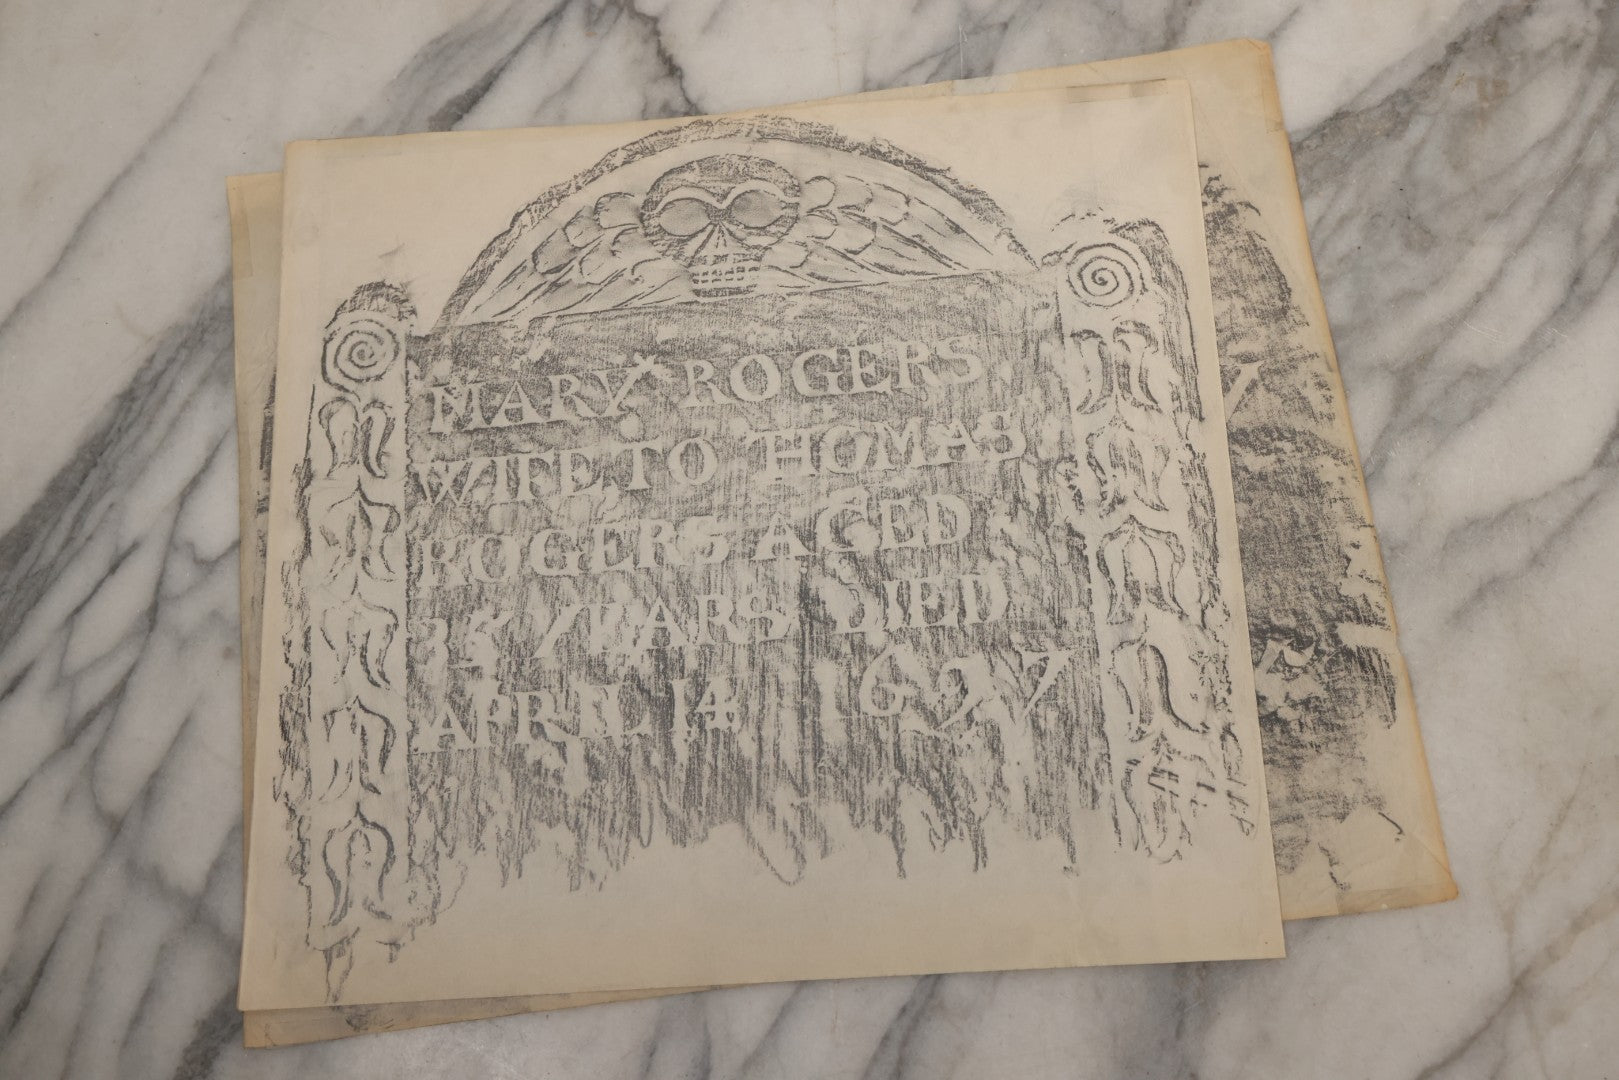 MARY ROGERS
WIFE TO THOMAS
ROGERS AGED
35 YEARS DIED
APRIL 14 1697